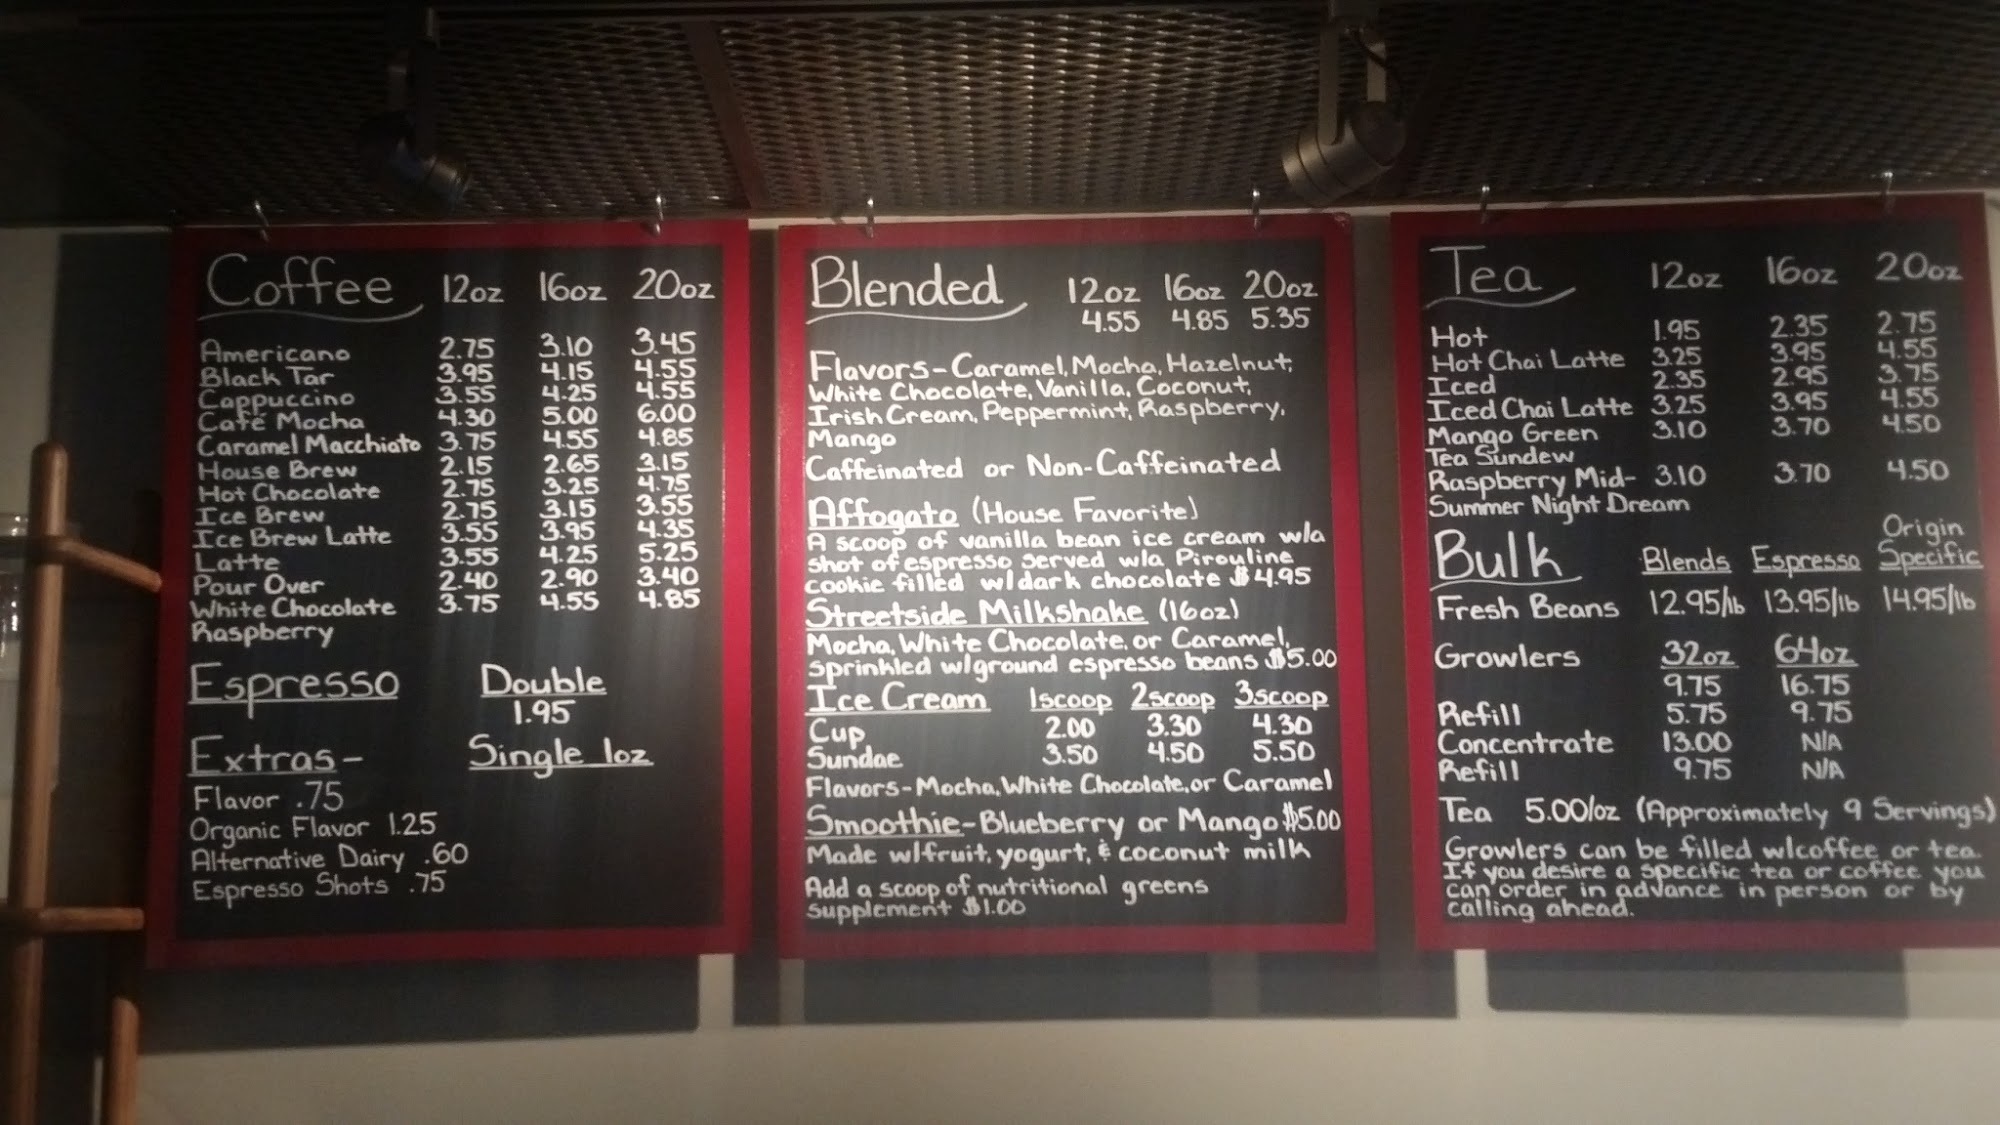 Coffee 12oz 16oz 20oz
Americano 2.75 3.10 3.45
Black Tar 3.95 4.15 4.55
Cappuccino 3.55 4.25 4.55
Café Mocha 4.30 5.00 6.00
Caramel Macchiato 3.75 4.55 4.85
House Brew 2.15 2.65 3.15
Hot Chocolate 2.75 3.25 4.75
Ice Brew 2.75 3.15 3.55
Ice Brew Latte 3.55 3.95 4.35
Latte 3.55 4.25 5.25
Pour Over 2.40 2.90 3.40
White Chocolate 3.75 4.55 4.85
Raspberry
Espresso Double
1.95
Extras- Single 1oz
Flavor .75
Organic Flavor 1.25
Alternative Dairy .60
Espresso Shots .75
Blended 12oz 16oz 20oz
4.55 4.85 5.35
Flavors-Caramel, Mocha, Hazelnut,
White Chocolate, Vanilla, Coconut,
Irish Cream, Peppermint, Raspberry,
Mango
Caffeinated or Non-Caffeinated
Affogato (House Favorite)
A scoop of vanilla bean ice cream w/a
shot of espresso served w/a Pirouline
cookie filled w/dark chocolate $4.95
Streetside Milkshake (16oz)
Mocha, White Chocolate, or Caramel,
sprinkled w/ground espresso beans $5.00
Ice Cream 1scoop 2scoop 3scoop
Cup 2.00 3.30 4.30
Sundae 3.50 4.50 5.50
Flavors-Mocha, White Chocolate, or Caramel
Smoothie-Blueberry or Mango $5.00
Made w/fruit, yogurt, & coconut milk
Add a scoop of nutritional greens
supplement $1.00
Tea 12oz 16oz 20oz
Hot 1.95 2.35 2.75
Hot Chai Latte 3.25 3.95 4.55
Iced 2.35 2.95 3.75
Iced Chai Latte 3.25 3.95 4.55
Mango Green 3.10 3.70 4.50
Tea Sundew
Raspberry Mid- 3.10 3.70 4.50
Summer Night Dream
Bulk Blends Espresso Origin Specific
Fresh Beans 12.95/lb 13.95/lb 14.95/lb
Growlers 32oz 64oz
9.75 16.75
Refill 5.75 9.75
Concentrate 13.00 N/A
Refill 9.75 N/A
Tea 5.00/oz (Approximately 9 Servings)
Growlers can be filled w/coffee or tea.
If you desire a specific tea or coffee you
can order in advance in person or by
calling ahead.